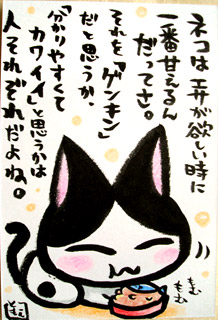 ネコはエサが欲しい時に
一番甘えるん
だってさ。
それを「ゲンキン」
だと思うか、
「分かりやすくて
カワイイ」と思うかは
人それぞれだよね。
もむ
もむ